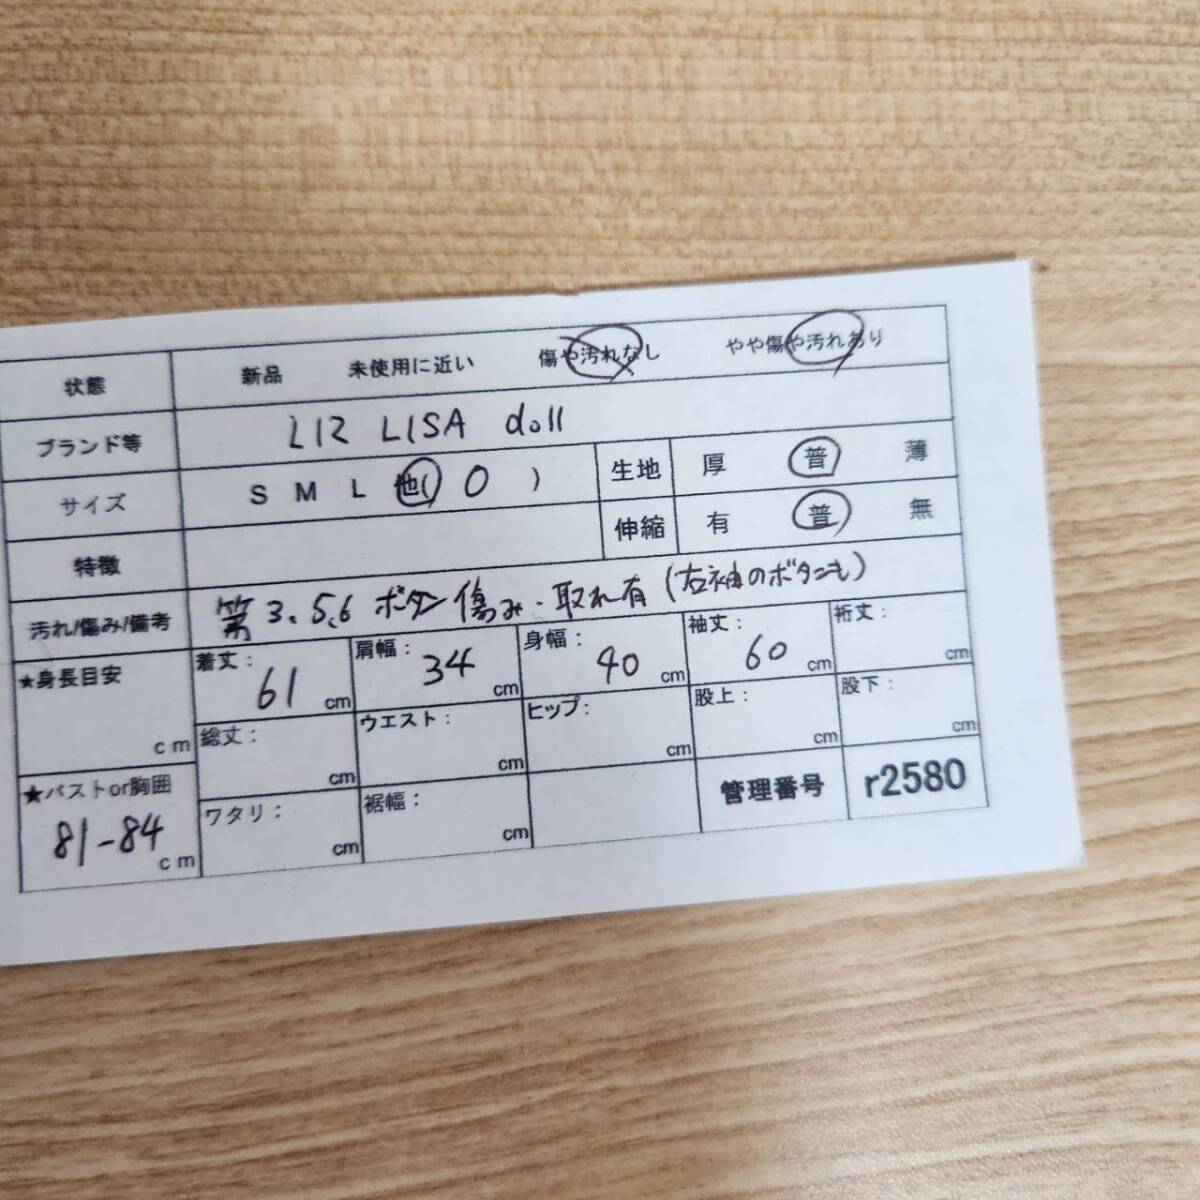 状態 新品 未使用に近い 傷や汚れなし やや傷や汚れあり
ブランド等 LIZ LISA doll
サイズ S M L 他( 0 ) 生地 厚 普 薄
特徴 伸縮 有 普 無
汚れ/傷み/備考 第3、5、6 ボタン傷み・取れ有(右袖のボタンも)
★身長目安 cm
着丈: 61 cm 肩幅: 34 cm 身幅: 40 cm 袖丈: 60 cm 裄丈: cm
総丈: cm ウエスト: cm ヒップ: cm 股上: cm 股下: cm
★バストor胸囲 81-84 cm
ワタリ: cm 裾幅: cm 管理番号 r2580